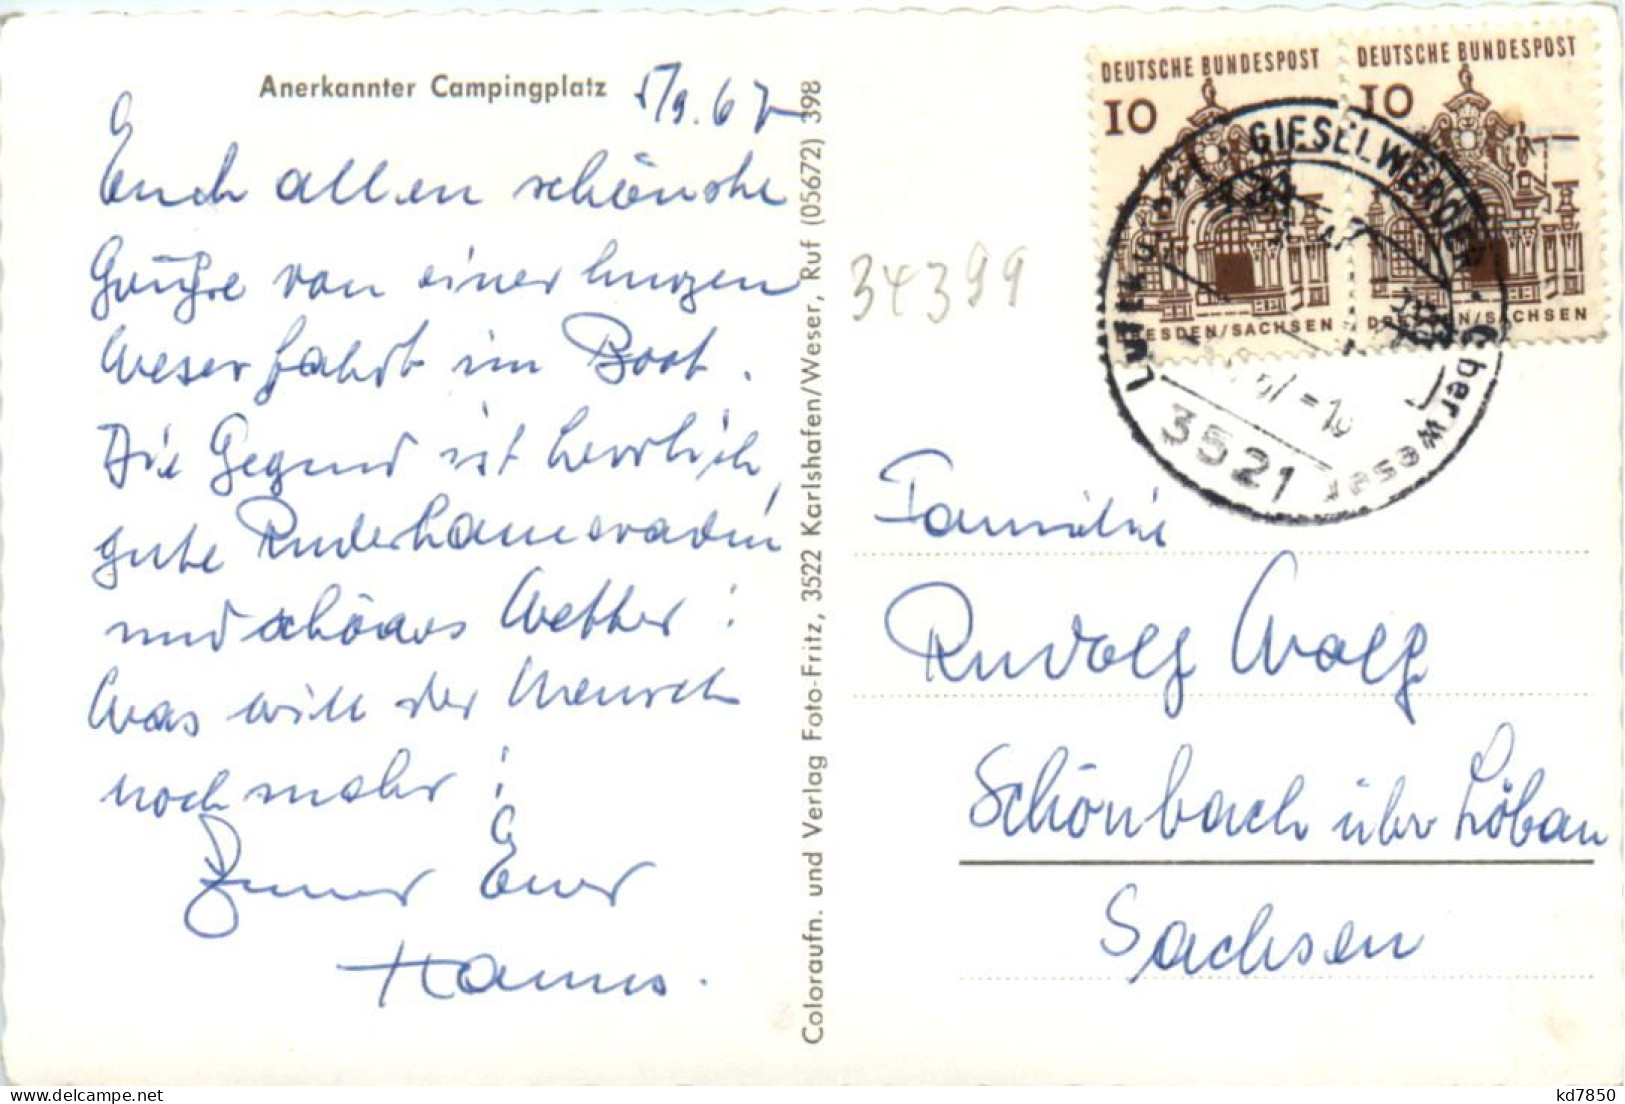 Anerkannter Campingplatz
5/9. 67
Euch allen schönste
Grüße von einer kurzen
Weserfahrt im Boot.
Die Gegend ist herrlich,
gute Ruderkameradin
und schönes Wetter!
Was will der Mensch
noch mehr!
Immer Euer
Hanns.
Coloraufn. und Verlag Foto-Fritz, 3522 Karlshafen/Weser, Ruf (05672) 398
34399
DEUTSCHE BUNDESPOST
10
DRESDEN/SACHSEN
DEUTSCHE BUNDESPOST
10
DRESDEN/SACHSEN
GIESELWERDER
Luftkurort
Oberweser
3521
Familie
Rudolf Wolf
Schönbach über Löbau
Sachsen
kd7850